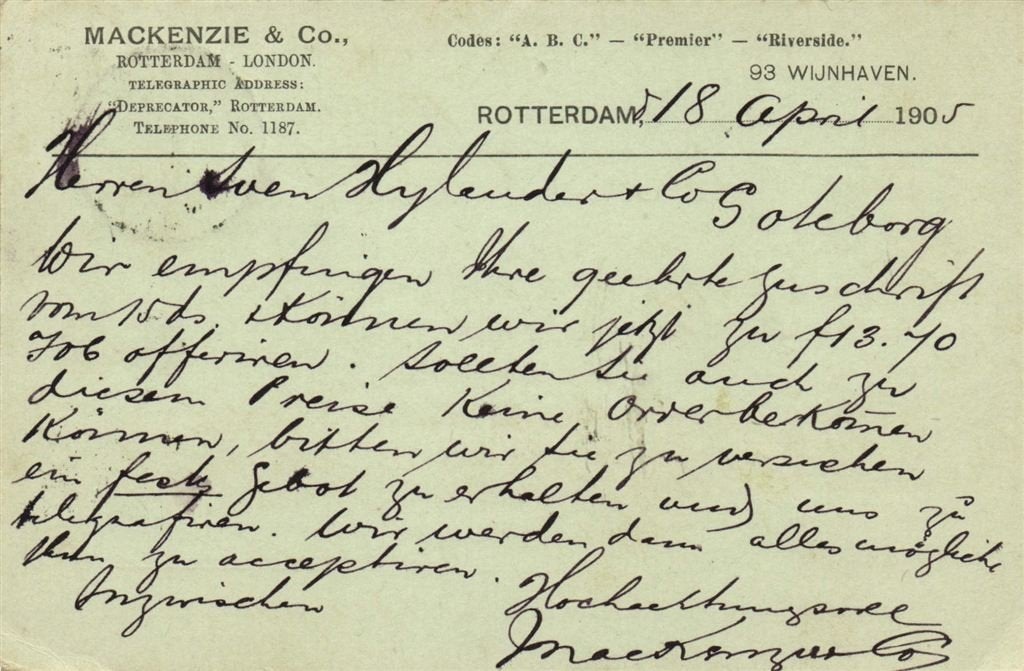 MACKENZIE & Co.,
ROTTERDAM - LONDON.
TELEGRAPHIC ADDRESS:
"DEPRECATOR," ROTTERDAM.
TELEPHONE No. 1187.
Codes: "A. B. C." — "Premier" — "Riverside."
93 WIJNHAVEN.
ROTTERDAM, 18 April 1905
Herren Sven Hylander & Co Goteborg
Wir empfingen Ihre geehrte Zuschrift
vom 15 ds. & können wir jetzt zu f13.70
Job offeriren. Sollten Sie auch zu
diesem Preise keine Order bekomen
können, bitten wir Sie zu versuchen
ein fest Gebot zu erhalten und uns zu
telegrafiren. Wir werden dann alles mögliche
thun zu acceptiren.
Inzwischen Hochachtungsvoll
MacKenzie & Co